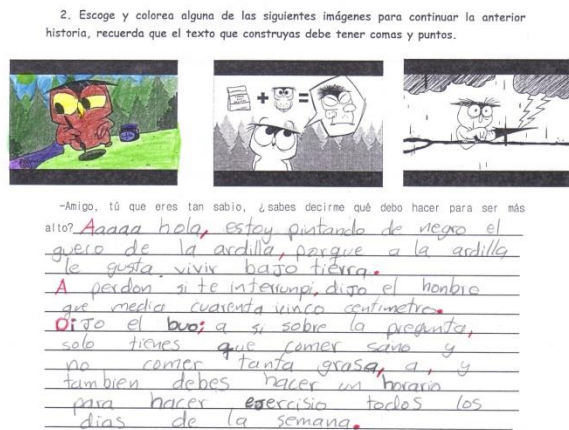 2. Escoge y colorea alguna de las siguientes imágenes para continuar la anterior
historia, recuerda que el texto que construyas debe tener comas y puntos.
-Amigo, tú que eres tan sabio, ¿sabes decirme qué debo hacer para ser más
alto? Aaaaa hola, estoy pintando de negro el
gueco de la ardilla, porque a la ardilla
le gusta vivir bajo tierra.
A perdon si te interrunpi, dijo el honbre
que media cuarenta icinco centimetros.
Dijo el buo; a si sobre la pregunta,
solo tienes que comer sano y
no comer tanta grasa, a, y
tambien debes hacer un horario
para hacer ejercisio todos los
dias de la semana.